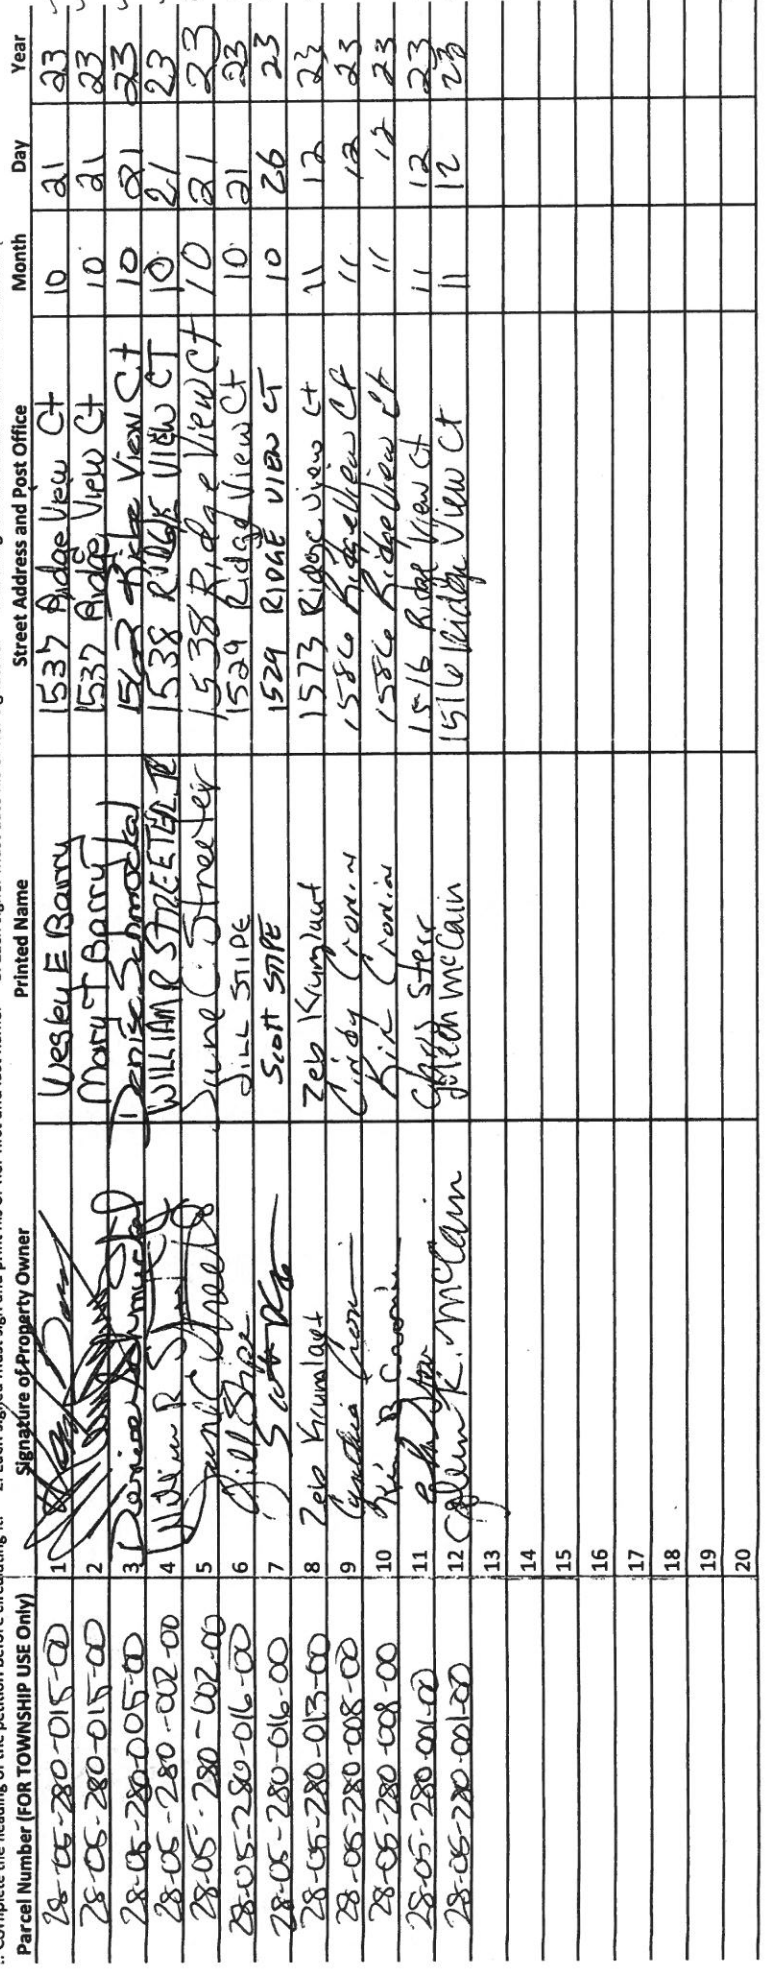 Parcel Number (FOR TOWNSHIP USE Only) Signature of Property Owner Printed Name Street Address and Post Office Month Day Year
28-05-280-015-00 1 Wesley E Barry 1537 Ridge View Ct 10 21 23
28-05-280-015-00 2 Mary T Barry 1537 Ridge View Ct 10 21 23
28-05-280-005-00 3 Denise Schmuckal Denise Schmuckal 1562 Ridge View Ct 10 21 23
28-05-280-002-00 4 William R Streeter WILLIAM R STREETER JR 1538 RIDGE VIEW CT 10 21 23
28-05-280-002-00 5 June C Streeter June C. Streeter 1538 Ridge View Ct 10 21 23
28-05-280-016-00 6 Jill Stipe JILL STIPE 1529 Ridge View Ct 10 21 23
28-05-280-016-00 7 Scott SCOTT STIPE 1529 RIDGE VIEW CT 10 26 23
28-05-280-013-00 8 Zeb Krumlauf Zeb Krumlauf 1573 Ridge View Ct 11 12 23
28-05-280-008-00 9 Cynthia Cronin Cindy Cronin 1586 Ridge View Ct 11 12 23
28-05-280-008-00 10 Cronin Cronin 1586 Ridge View Ct 11 12 23
28-05-280-001-00 11 1516 Ridge View Ct 11 12 23
28-05-280-001-00 12 Colleen K. McCain Colleen McCain 1516 Ridge View Ct 11 12 23
13
14
15
16
17
18
19
20